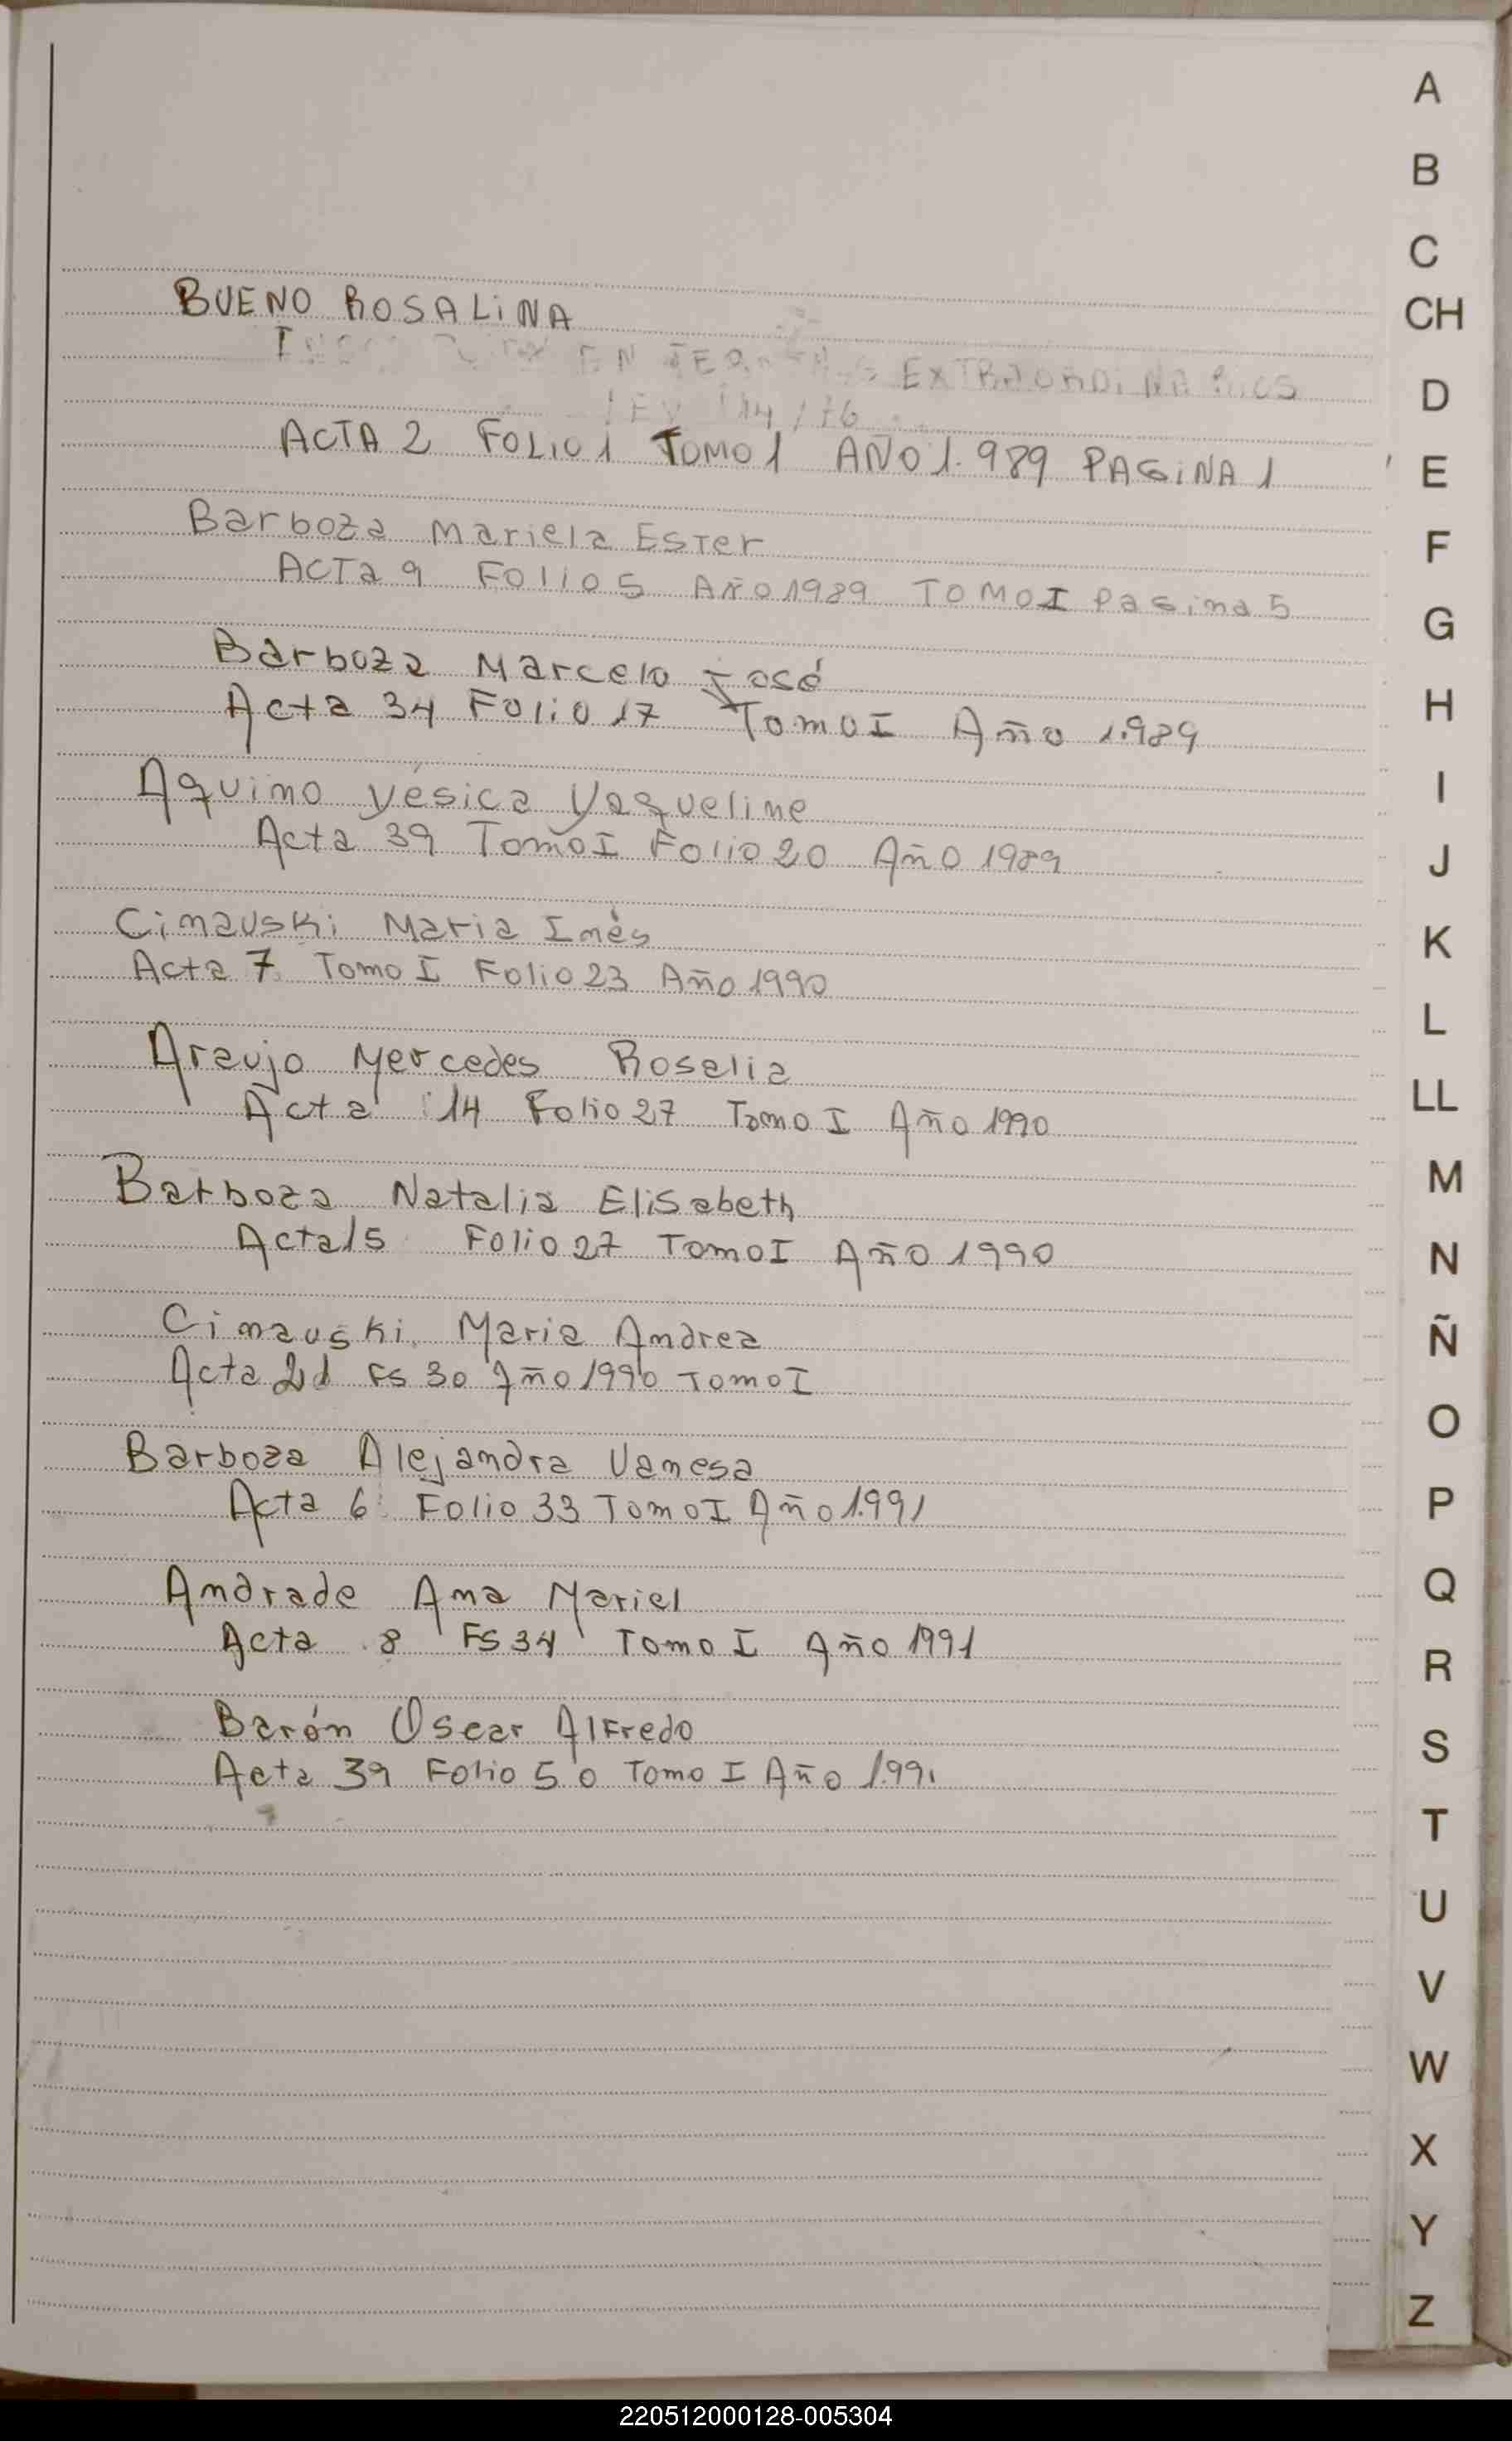 BUENO ROSALINA
EN EXTRAORDINARIOS
LEY
ACTA 2 FOLIO 1 TOMO 1 AÑO 1.989 PAGINA 1
Barboza Mariela Ester
ACTA 9 FOLIO 5 AÑO 1989 TOMO I Pagina 5
Barboza Marcelo José
Acta 34 Folio 17 Tomo I Año 1.989
Aquino Yésica Yaqueline
Acta 39 Tomo I Folio 20 Año 1989
Cimauski Maria Inés
Acta 7 Tomo I Folio 23 Año 1990
Araujo Mercedes Rosalia
Acta 14 Folio 27 Tomo I Año 1990
Barboza Natalia Elisabeth
Acta 15 Folio 27 Tomo I Año 1990
Cimauski Maria Andrea
Acta FS 30 Año 1990 Tomo I
Barboza Alejandra Vanesa
Acta 6 Folio 33 Tomo I Año 1.991
Andrade Ana Mariel
Acta 8 FS 34 Tomo I Año 1991
Barón Oscar Alfredo
Acta 39 Folio 50 Tomo I Año 1.991
A
B
C
CH
D
E
F
G
H
I
J
K
L
LL
M
N
Ñ
O
P
Q
R
S
T
U
V
W
X
Y
Z
220512000128-005304